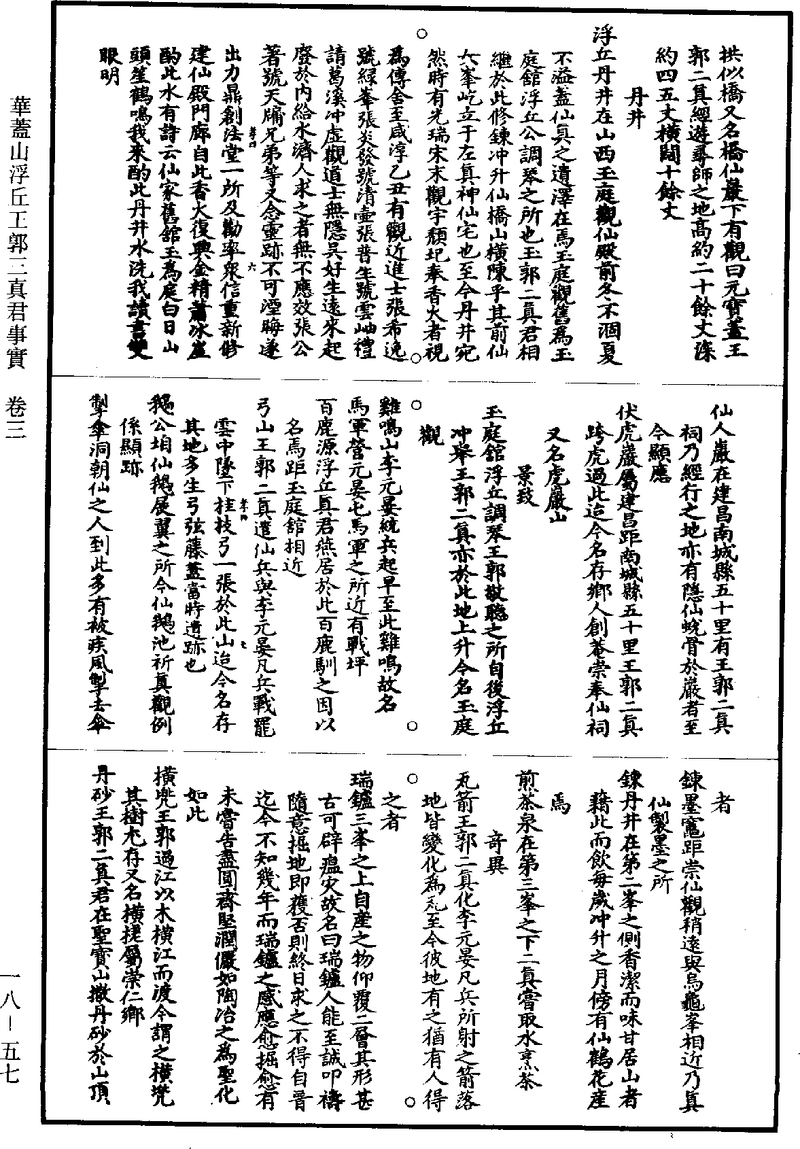 華蓋山浮丘王郭三真君事實　卷三
一八—五七
拱似橋又名橋仙巖下有觀曰元寶蓋王
郭二真經遊尋師之地高約二十餘丈深
約四五丈橫闊十餘丈
丹井
浮丘丹井在山西玉庭觀仙殿前冬不涸夏
不溢蓋仙真之遺澤在焉玉庭觀舊為玉
庭館浮丘公調琴之所也王郭二真君相
繼於此修鍊冲升仙橋山橫陳乎其前仙
人峯屹立于左真神仙宅也至今丹井宛
然時有光瑞宋末觀宇頹圯奉香火者視
為傳舍至咸淳乙丑有觀近進士張希逸
號綠峯張炎發號清壷張普生號雲岫禮
請葛溪冲虛觀道士無隱吳好生遠來起
廢於內給水濟人求之者無不應效張公
著號天牖兄弟等又念靈跡不可湮晦遂
出力鼎創法堂一所及勸率眾信重新修
建仙殿門廊自此香火復興金精蕭冰崖
酌此水有詩云仙家舊館玉為庭白日山
頭笙鶴鳴我來酌此丹井水洗我讀書雙
眼明
仙人巖在建昌南城縣五十里有王郭二真
祠乃經行之地亦有隱仙蛻骨於巖者至
今顯應
伏虎巖屬建昌距南城縣五十里王郭二真
跨虎過此迨今名存鄉人創菴崇奉仙祠
又名虎巖山
景致
玉庭館浮丘調琴王郭敬聽之所自後浮丘
冲舉王郭二真亦於此地上升今名玉庭
觀
雞鳴山李元晏統兵起早至此雞鳴故名
馬軍營元晏屯馬軍之所近有戰坪
百鹿源浮丘真君燕居於此百鹿馴之因以
名焉距玉庭館相近
弓山王郭二真遣仙兵與李元晏凡兵戰罷
雲中墜下桂枝弓一張於此山迨今名存
其地多生弓弦藤蓋當時遺跡也
鵝公垇仙鵝展翼之所今仙鵝池祈真觀例
係顯跡
掣傘洞朝仙之人到此多有被疾風掣去傘
者
鍊墨竈距崇仙觀稍遠與烏龜峯相近乃真
仙製墨之所
鍊丹井在第二峯之側香潔而味甘居山者
藉此而飲每歲冲升之月傍有仙鶴花產
焉
煎茶泉在第三峯之下二真嘗取水烹茶
奇異
瓦箭王郭二真化李元晏凡兵所射之箭落
地皆變化為瓦至今彼地有之猶有人得
之者
瑞鑪三峯之上自產之物仰覆二層其形甚
古可辟瘟灾故名曰瑞鑪人能至誠叩禱
隨意掘地即獲否則終日求之不得自晉
迄今不知幾年而瑞鑪之感應愈掘愈有
未嘗告盡圓齊堅潤儼如陶冶之為聖化
如此
橫凳王郭過江以木橫江而渡今謂之橫凳
其樹尤存又名橫槎屬崇仁鄉
丹砂王郭二真君在聖寶山撒丹砂於山頂